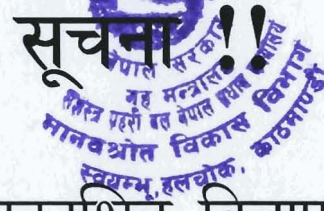 सूचना !!
नेपाल सरकार
गृह मन्त्रालय
सशस्त्र प्रहरी बल नेपाल प्रधान कार्यालय
मानवश्रोत विकास विभाग
स्वयम्भू, हलचोक, काठमाण्डौ